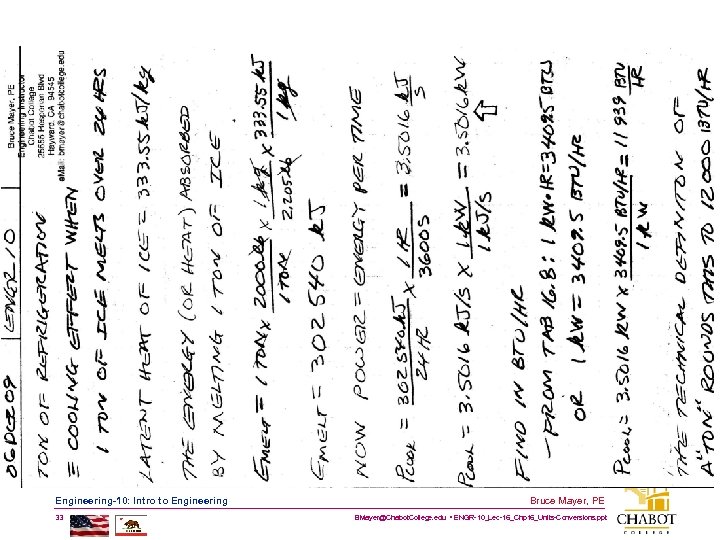 06DEC09 | ENGR 10
Bruce Mayer, PE
Engineering Instructor
Chabot College
25555 Hesperian Blvd
Hayward, CA 94545
eMail: bmayer@chabotcollege.edu
TON OF REFRIGERATION
≡ COOLING EFFECT WHEN
1 TON OF ICE MELTS OVER 24 HRS
LATENT HEAT OF ICE = 333.55 kJ/kg
THE ENERGY (OR HEAT) ABSORBED
BY MELTING 1 TON OF ICE
EMELT = 1 TON × 2000 lb / 1 TON × 1 kg / 2.205 lb × 333.55 kJ / 1 kg
EMELT = 302 540 kJ
NOW POWER = ENERGY PER TIME
PCOOL = 302540 kJ / 24 HR × 1 HR / 3600 S = 3.5016 kJ / S
PCOOL = 3.5016 kJ/S × 1 kW / 1 kJ/S = 3.5016 kW
⇧
FIND IN BTU/HR
– FROM TAB 16.8: 1 kW•HR = 3409.5 BTU
OR 1 kW = 3409.5 BTU/HR
PCOOL = 3.5016 kW × 3409.5 BTU/HR / 1 kW = 11 939 BTU / HR
THE TECHNICAL DEFINITON OF
A "TON" ROUNDS THIS TO 12 000 BTU/HR
Engineering-10: Intro to Engineering
33
Bruce Mayer, PE
BMayer@ChabotCollege.edu • ENGR-10_Lec-16_Chp16_Units-Conversions.ppt
CHABOT
COLLEGE